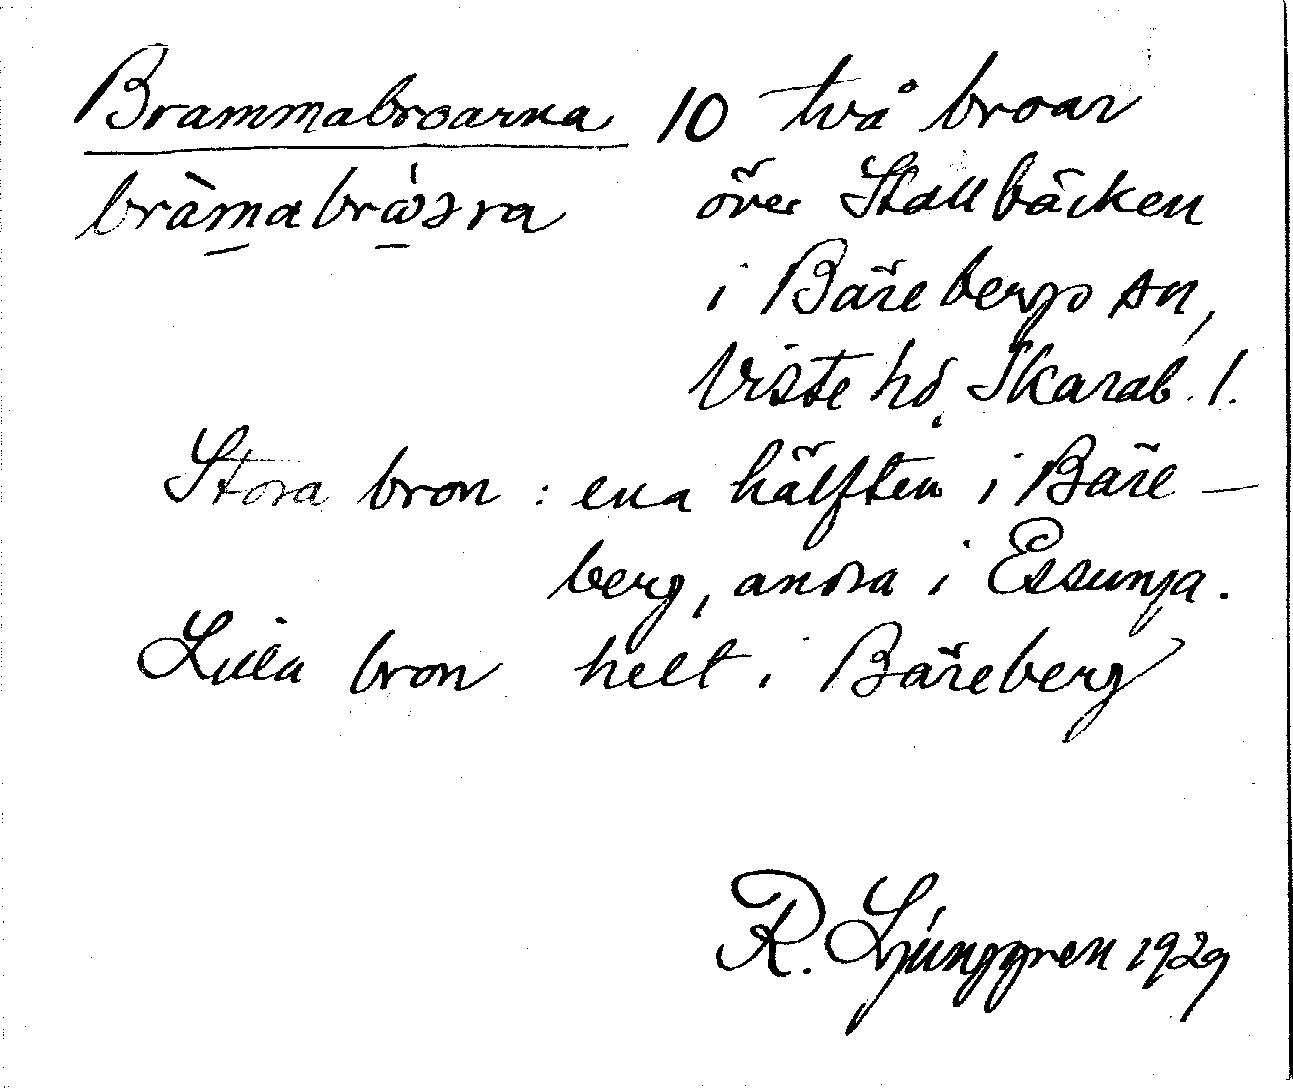 Brammabroarna 10 två broar
bràmabrẁɔra över Stallbäcken
i Bärebergs sn,
Viste hd, Skarab. l.
Stora bron : ena hälften i Bäre-
berg, andra i Essunga.
Lilla bron helt i Bäreberg
R. Ljunggren 1929